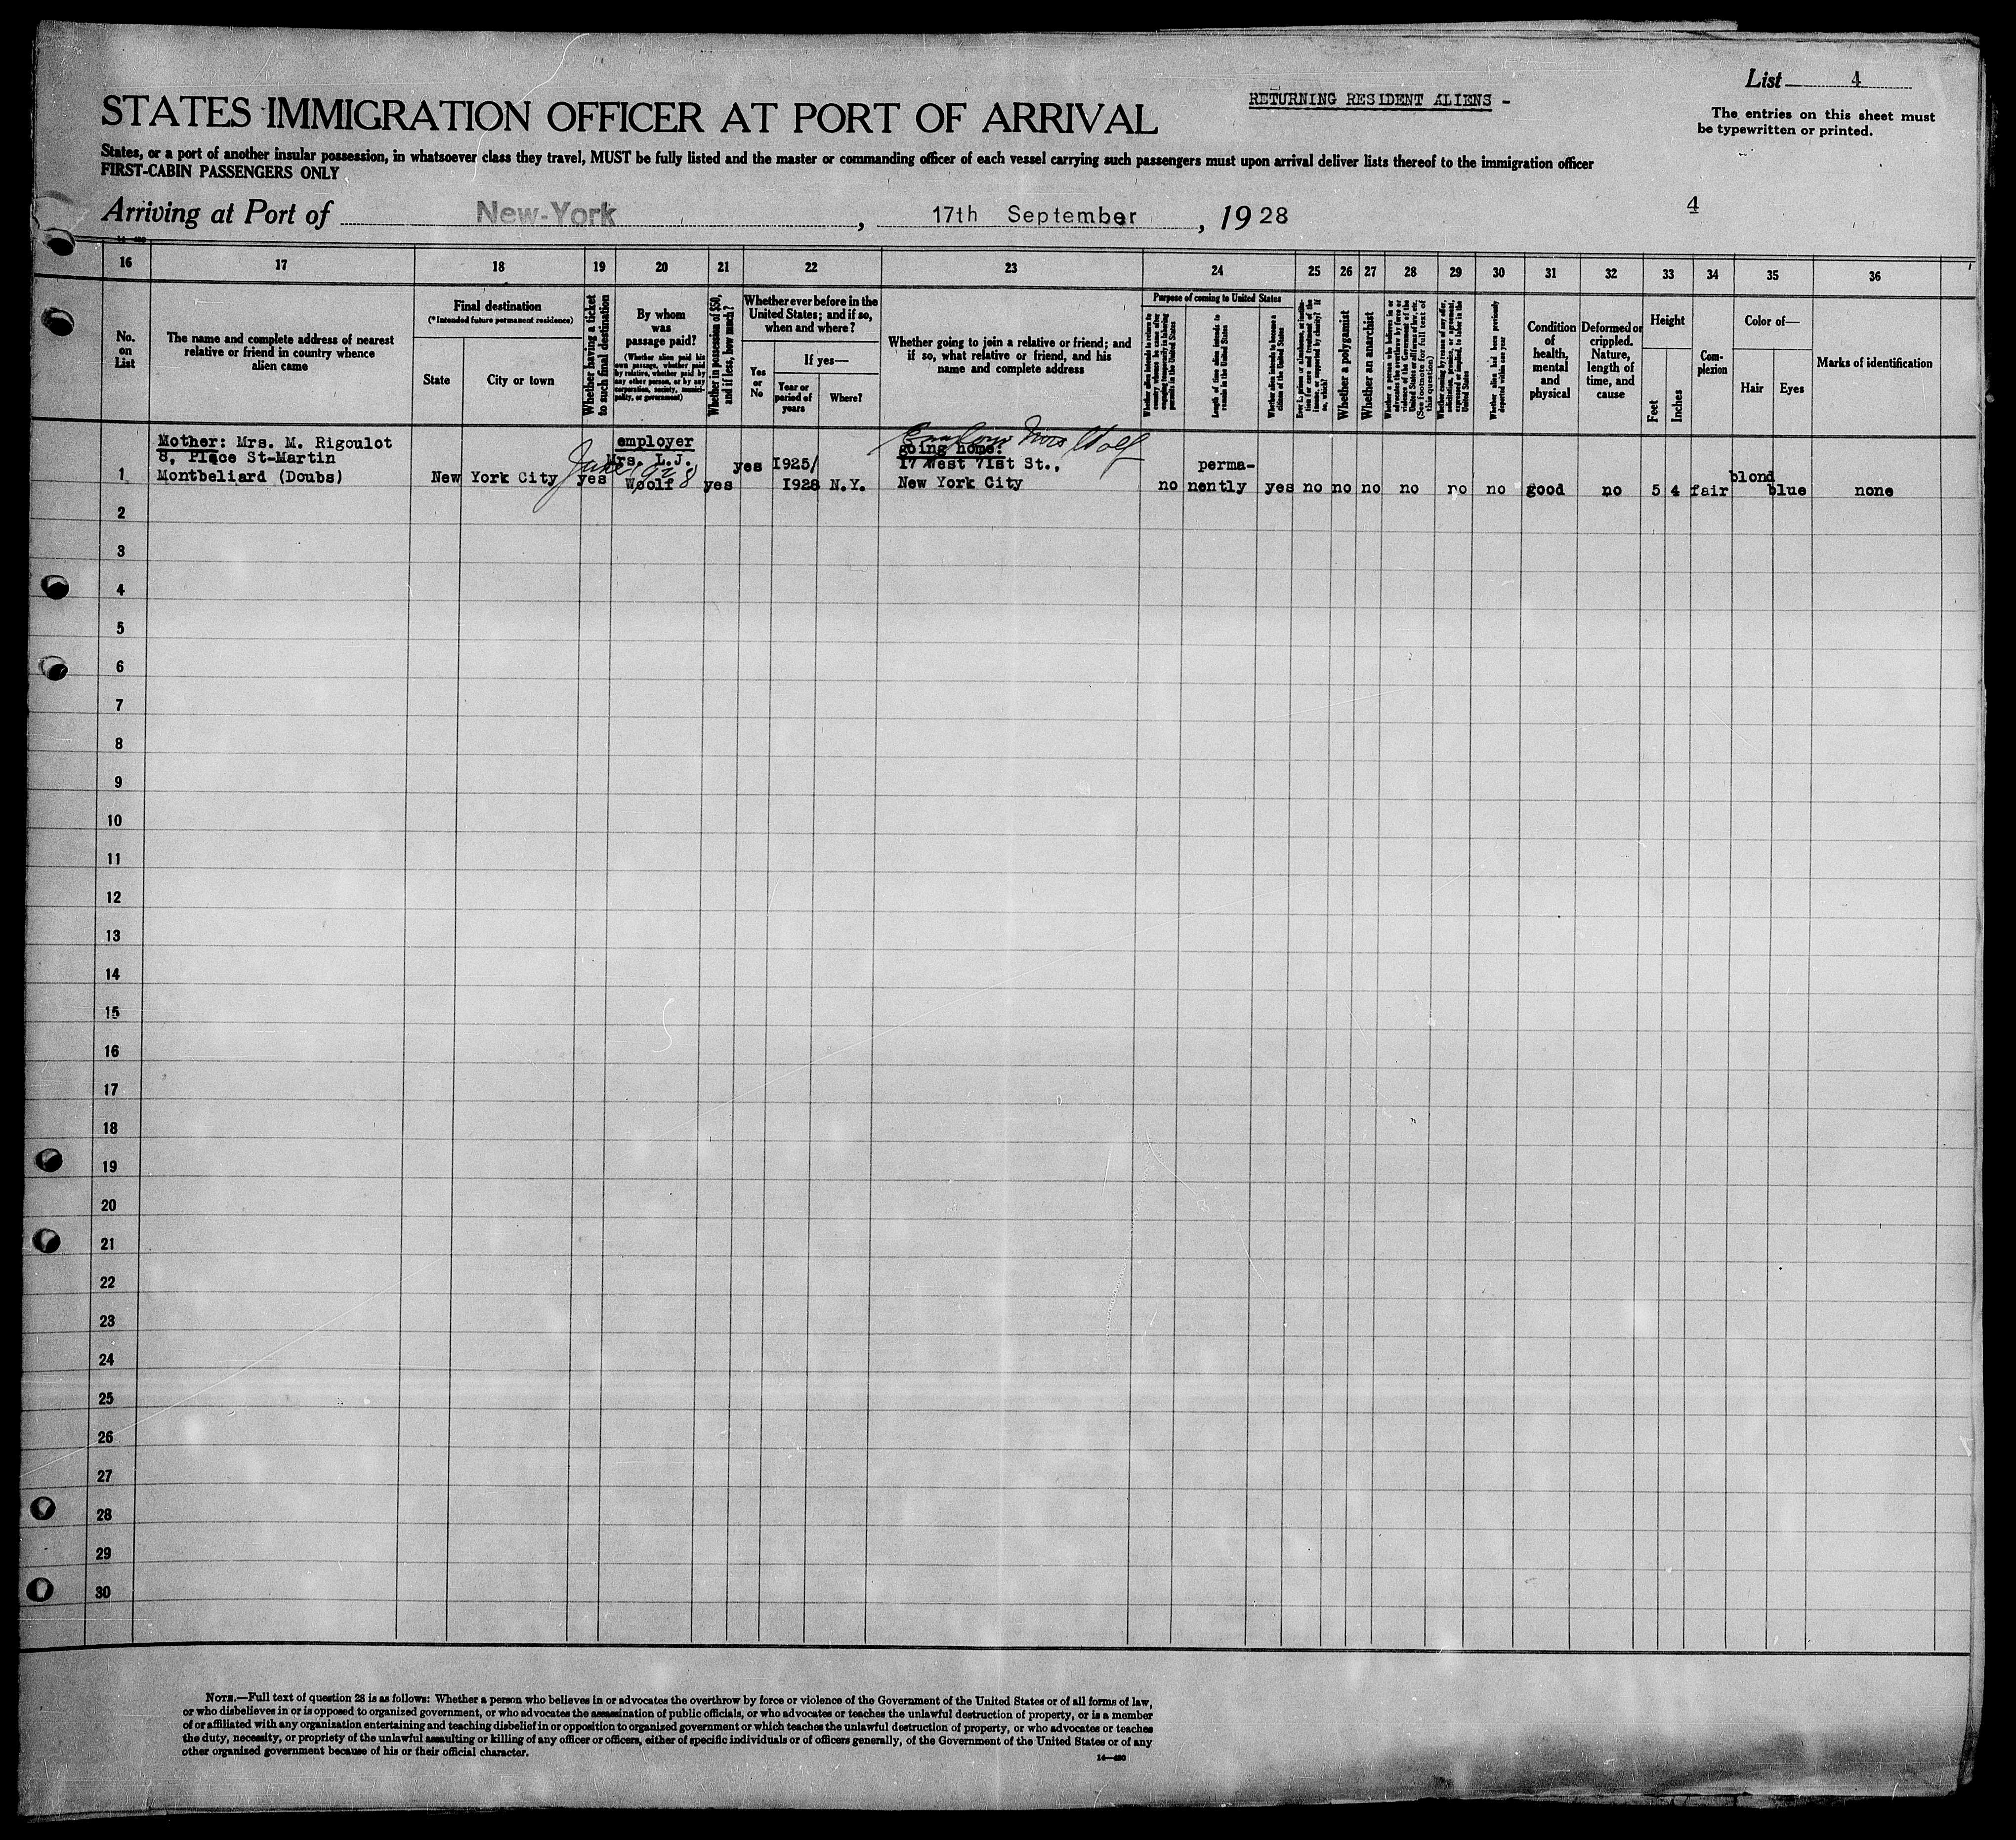 List 4
RETURNING RESIDENT ALIENS -
The entries on this sheet must
be typewritten or printed.
STATES IMMIGRATION OFFICER AT PORT OF ARRIVAL
States, or a port of another insular possession, in whatsoever class they travel, MUST be fully listed and the master or commanding officer of each vessel carrying such passengers must upon arrival deliver lists thereof to the immigration officer
FIRST-CABIN PASSENGERS ONLY
Arriving at Port of New-York, 17th September, 1928
4
16 17 18 19 20 21 22 23 24 25 26 27 28 29 30 31 32 33 34 35 36
No.
on
List
The name and complete address of nearest
relative or friend in country whence
alien came
Final destination
(*Intended future permanent residence)
State
City or town
Whether having a ticket
to such final destination
By whom
was
passage paid?
(Whether alien paid his
own passage, whether paid
by relative, whether paid by
any other person, or by any
corporation, society, munici-
pality, or government)
Whether in possession of $50,
and if less, how much?
Whether ever before in the
United States; and if so,
when and where?
Yes
or
No
If yes—
Year or
period of
years
Where?
Whether going to join a relative or friend; and
if so, what relative or friend, and his
name and complete address
Purpose of coming to United States
Whether alien intends to return to
country whence he came after
engaging temporarily in laboring
pursuits in the United States
Length of time alien intends to
remain in the United States
Whether alien intends to become a
citizen of the United States
Whether a polygamist
Whether an anarchist
Whether a person who believes in or
advocates the overthrow by force or
violence of the Government of the
United States or all forms of law, etc.
(See footnote for full text of
this question)
Whether coming by reason of any offer,
solicitation, promise, or agreement,
expressed or implied, to labor in the
United States
Whether alien had been previously
deported within one year
Condition
of
health,
mental
and
physical
Deformed or
crippled.
Nature,
length of
time, and
cause
Height
Feet
Inches
Com-
plexion
Color of—
Hair
Eyes
Marks of identification
1
Mother: Mrs. M. Rigoulot
8, Place St-Martin
Montbeliard (Doubs)
New York City
yes
June 1928
employer
Mrs. L.J.
Woolf
yes
yes
1925/
1928
N.Y.
Mrs Wolf
going home:
17 West 71st St.,
New York City
no
perma-
nently
yes no no no no no no good no 5 4 fair blond blue none
2
3
4
5
6
7
8
9
10
11
12
13
14
15
16
17
18
19
20
21
22
23
24
25
26
27
28
29
30
NOTE.—Full text of question 28 is as follows: Whether a person who believes in or advocates the overthrow by force or violence of the Government of the United States or of all forms of law,
or who disbelieves in or is opposed to organized government, or who advocates the assassination of public officials, or who advocates or teaches the unlawful destruction of property, or is a member
of or affiliated with any organization entertaining and teaching disbelief in or opposition to organized government or which teaches the unlawful destruction of property, or who advocates or teaches
the duty, necessity, or propriety of the unlawful assaulting or killing of any officer or officers, either of specific individuals or of officers generally, of the Government of the United States or of any
other organized government because of his or their official character.
14—490